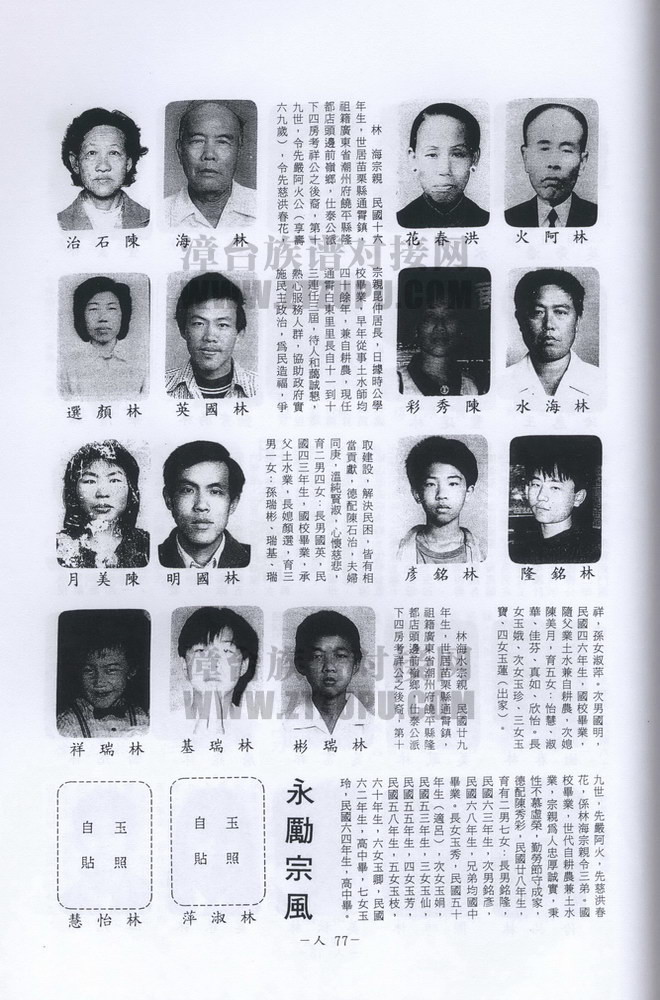 林火阿
花春洪
林　海宗親　民國十六
年生，世居苗栗縣通霄鎮，
祖籍廣東省潮州府饒平縣隆
都店頭邊前嶺鄉，仕泰公派
下四房考祥公之後裔，第十
九世，令先嚴阿火公（享壽
六九歲），令先慈洪春花，
林海
陳石治
林海水
陳秀彩
宗親昆仲居長，日據時公學
校畢業，早年從事土水師均
四十餘年，兼自耕農，現任
通霄白東里里長自十一到十
三連任三屆，待人和藹誠懇，
熱心服務人群，協助政府實
施民主政治，為民造福，爭
林國英
林顏選
林銘隆
林銘彥
取建設，解決民困，皆有相
當貢獻，德配陳石治，夫婦
同庚，溫純賢淑，心懷慈悲，
育二男四女：長男國英，民
國四三年生，國校畢業，承
父土水業，長媳顏選，育三
男一女：孫瑞彬、瑞基、瑞
林國明
陳美月
祥，孫女淑萍。次男國明，
民國四六年生，國校畢業，
隨父業土水兼自耕農，次媳
陳美月，育五女：怡慧、淑
華、佳芬、真如、欣怡。長
女玉娥、次女玉珍、三女玉
寶、四女玉蓮（出家）。
林海水宗親　民國廿九
年生，世居苗栗縣通霄鎮，
祖籍廣東省潮州府饒平縣隆
都店頭邊前嶺鄉，仕泰公派
下四房考祥公之後裔，第十
林瑞彬
林瑞基
林瑞祥
九世，先嚴阿火，先慈洪春
花，係林海宗親令三弟。國
校畢業，世代自耕農兼土水
業，宗親為人忠厚誠實，秉
性不慕虛榮，勤勞節守成家，
德配陳秀彩，民國廿八年生，
育有二男七女：長男銘隆，
民國六三年生，次男銘彥，
民國六八年生，兄弟均國中
畢業。長女玉秀，民國五十
年生（適呂），次女玉娟，
民國五三年生，三女玉仙，
民國五五年生，四女玉芳，
民國五八年生，五女玉枝，
六十年生，六女玉卿，民國
六二年生，高中畢，七女玉
玲，民國六四年生，高中畢。
永勵宗風
玉照
自貼
林淑萍
玉照
自貼
林怡慧
－人 77－
漳台族谱对接网
漳台族谱对接网